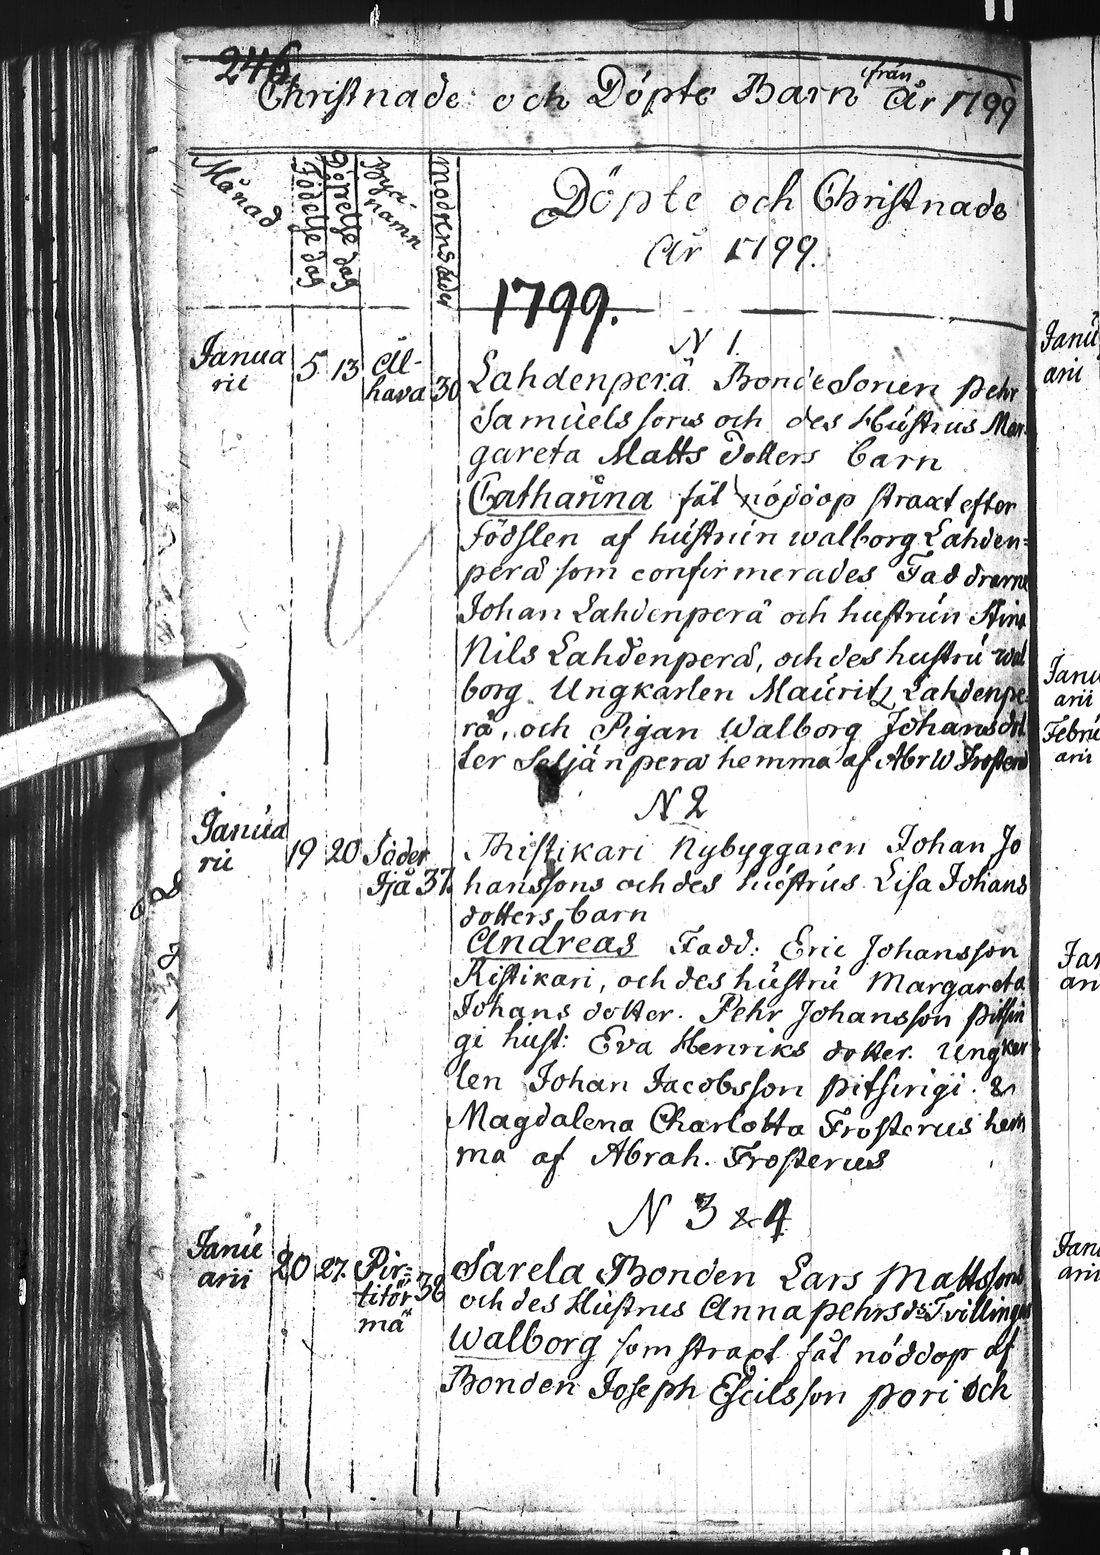 246.
Christnade och Döpte Barn ifrån År 1799
Månad
Födelse dag
Döpelse dag
Byanamn
Modrens ålder
Döpte och Christnade
År 1799.
1799.
N 1.
Janua
rii
5 13 Al-
hava 30
Lahdenperä Bonde Sonen Pehr
Samuels sons och des Hustrus Mar
gareta Matts Dotters barn
Catharina fåt nöddop straxt efter
Födslen af hustrun walborg Lahden=
perä som confirmerades Faddrarne
Johan Lahdenperä och hustrun Stina
Nils Lahdenperä, och des hustru wal
borg Ungkarlen Mauritz Lahdenpe
rä, och Pigan Walborg Johansdot
ter Seljänperä hemma af Abr W Frosterus
N 2
Janua
rii
19 20 Söder
Ijå 37.
Ristikari Nybyggaren Johan Jo
hanssons och des hustrus Lisa Johans
dotters barn
Andreas Fadd: Eric Johansson
Ristikari, och des hustru Margareta
Johans dotter. Pehr Johansson pitsin
gi hust: Eva Henriks dotter. Ungkar
len Johan Jacobsson pitsirigi. &
Magdalena Charlotta Frosterus hem
ma af Abrah. Frosterus
N 3 & 4
Janu
arii
20 27. Pir=
titör
mä 38
Sarela Bonden Lars Mattssons
och des Hustrus Anna pehrs ds Tvillingar
Walborg som straxt fåt nöddop af
Bonden Joseph Escilsson pori och
Janu
arii
Janu
arii
Febru
arii
Jan
ari
Janu
arii